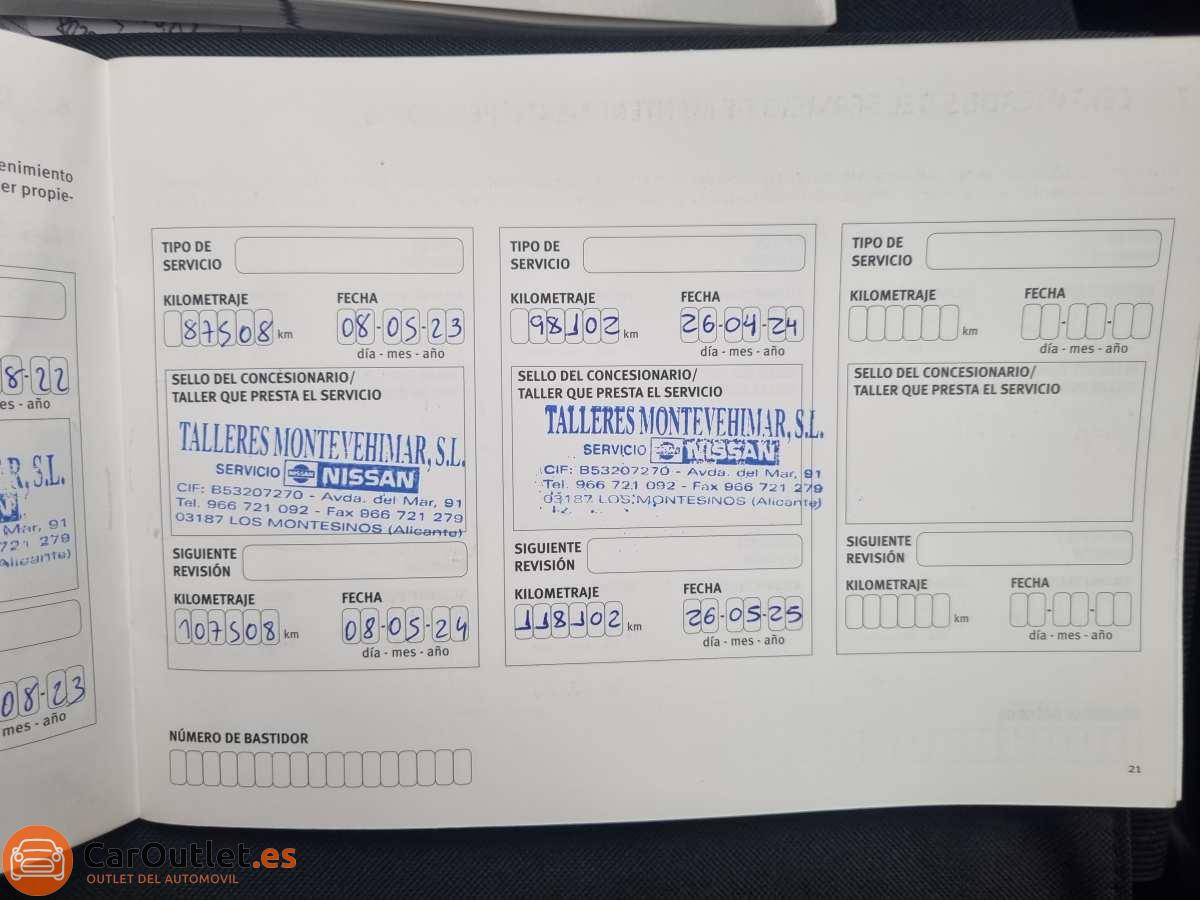 enimiento
er propie-
8-22
es - año
AR, S.L.
Mar, 91
721 279
Alicante)
08-23
mes - año
TIPO DE
SERVICIO
KILOMETRAJE FECHA
87508 km 08-05-23
día - mes - año
SELLO DEL CONCESIONARIO/
TALLER QUE PRESTA EL SERVICIO
TALLERES MONTEVEHIMAR, S.L.
SERVICIO NISSAN
CIF: B53207270 - Avda. del Mar, 91
Tel. 966 721 092 - Fax 966 721 279
03187 LOS MONTESINOS (Alicante)
SIGUIENTE
REVISIÓN
KILOMETRAJE FECHA
107508 km 08-05-24
día - mes - año
TIPO DE
SERVICIO
KILOMETRAJE FECHA
98102 km 26-04-24
día - mes - año
SELLO DEL CONCESIONARIO/
TALLER QUE PRESTA EL SERVICIO
TALLERES MONTEVEHIMAR, S.L.
SERVICIO NISSAN
CIF: B53207270 - Avda. del Mar, 91
Tel. 966 721 092 - Fax 966 721 279
03187 LOS MONTESINOS (Alicante)
SIGUIENTE
REVISIÓN
KILOMETRAJE FECHA
118102 km 26-05-25
día - mes - año
TIPO DE
SERVICIO
KILOMETRAJE FECHA
km
día - mes - año
SELLO DEL CONCESIONARIO/
TALLER QUE PRESTA EL SERVICIO
SIGUIENTE
REVISIÓN
KILOMETRAJE FECHA
km
día - mes - año
NÚMERO DE BASTIDOR
21
CarOutlet.es
OUTLET DEL AUTOMOVIL